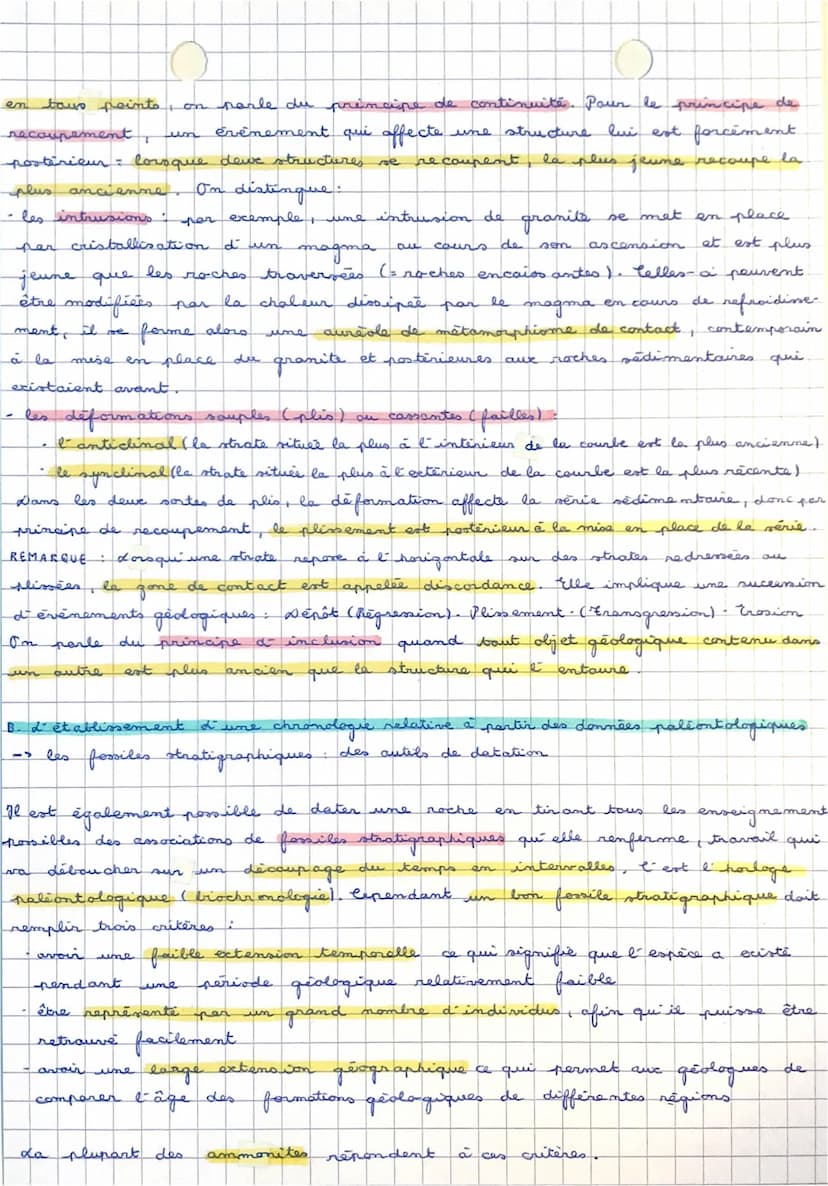 en tous points, on parle du principe de continuité. Pour le principe de
recoupement, un événement qui affecte une structure lui est forcément
postérieur = lorsque deux structures se recoupent, la plus jeune recoupe la
plus ancienne. On distingue :
- les intrusions : par exemple, une intrusion de granite se met en place
par cristallisation d'un magma au cours de son ascension et est plus
jeune que les roches traversées (= roches encaissantes). Celles-ci peuvent
être modifiées par la chaleur dissipée par le magma en cours de refroidisse-
ment, il se forme alors une auréole de métamorphisme de contact, contemporain
à la mise en place du granite et postérieures aux roches sédimentaires qui
existaient avant.
- les déformations souples (plis) ou cassantes (failles) :
• l'anticlinal (la strate située la plus à l'intérieur de la courbe est la plus ancienne)
• le synclinal (la strate située la plus à l'extérieur de la courbe est la plus récente)
Dans les deux sortes de plis, la déformation affecte la série sédimentaire, donc par
principe de recoupement, le plissement est postérieur à la mise en place de la série.
REMARQUE : Lorsqu'une strate repose à l'horizontale sur des strates redressées ou
plissées, la zone de contact est appelée discordance. Elle implique une succession
d'événements géologiques : Dépôt (Régression). Plissement. (Transgression). Erosion
On parle du principe d'inclusion quand tout objet géologique contenu dans
un autre est plus ancien que la structure qui l'entoure.
B. L'établissement d'une chronologie relative à partir des données paléontologiques
-> les fossiles stratigraphiques : des outils de datation
Il est également possible de dater une roche en tirant tous les enseignement
possibles des associations de fossiles stratigraphiques qu'elle renferme, travail qui
va déboucher sur un découpage du temps en intervalles, c'est l'horloge
paléontologique (biochronologie). Cependant un bon fossile stratigraphique doit
remplir trois critères :
- avoir une faible extension temporelle ce qui signifie que l'espèce a existé
pendant une période géologique relativement faible
- être représenté par un grand nombre d'individus, afin qu'il puisse être
retrouvé facilement
- avoir une large extension géographique ce qui permet aux géologues de
comparer l'âge des formations géologiques de différentes régions
La plupart des ammonites répondent à ces critères.